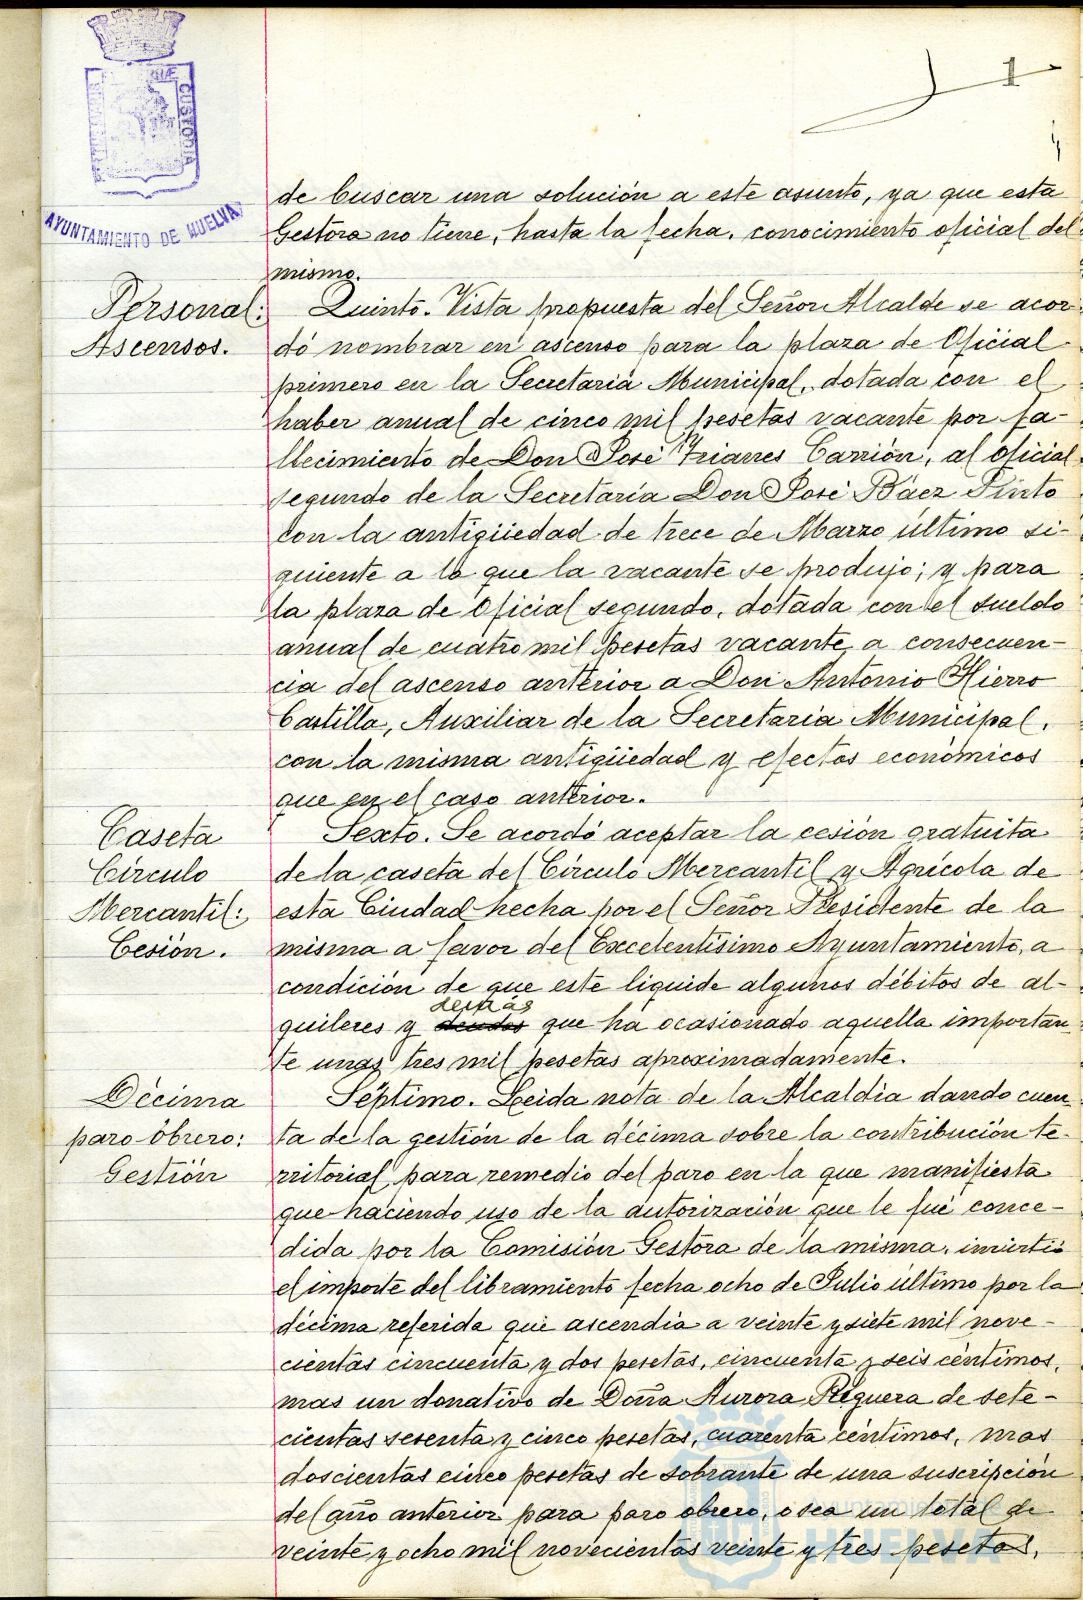 1
CUSTODIA
AYUNTAMIENTO DE HUELVA
de buscar una solución a este asunto, ya que esta
Gestora no tiene, hasta la fecha, conocimiento oficial del
mismo.
Personal:
Ascensos.
Quinto. Vista propuesta del Señor Alcalde se acor-
dó nombrar en ascenso para la plaza de Oficial
primero en la Secretaría Municipal, dotada con el
haber anual de cinco mil pesetas vacante por fa-
llecimiento de Don José Carrión, al oficial
segundo de la Secretaría Don José Báez Pinto
con la antigüedad de trece de Marzo último si-
guiente a la que la vacante se produjo; y para
la plaza de Oficial segundo, dotada con el sueldo
anual de cuatro mil pesetas vacante a consecuen-
cia del ascenso anterior a Don Antonio Hierro
Castilla, Auxiliar de la Secretaria Municipal,
con la misma antigüedad y efectos económicos
que en el caso anterior.
Caseta
Círculo
Mercantil:
Cesión.
Sexto. Se acordó aceptar la cesión gratuita
de la caseta del Círculo Mercantil y Agrícola de
esta Ciudad hecha por el Señor Presidente de la
misma a favor del Excelentísimo Ayuntamiento, a
condición de que este liquide algunos débitos de al-
demás
quileres y deudas que ha ocasionado aquella importan-
te unas tres mil pesetas aproximadamente.
Décima
paro obrero:
Gestión
Séptimo. Leida nota de la Alcaldía dando cuen-
ta de la gestión de la décima sobre la contribución te-
rritorial para remedio del paro en la que manifiesta
que haciendo uso de la autorización que le fué conce-
dida por la Comisión Gestora de la misma, invirtió
el importe del libramiento fecha ocho de Julio último por la
décima referida que ascendía a veinte y siete mil nove-
cientas cincuenta y dos pesetas, cincuenta y seis céntimos,
mas un donativo de Doña Aurora Reguera de sete-
cientas sesenta y cinco pesetas, cuarenta céntimos, mas
doscientas cinco pesetas de sobrante de una suscripción
del año anterior para paro obrero, o sea un total de
veinte y ocho mil novecientas veinte y tres pesetas,
Ayuntamiento de
HUELVA